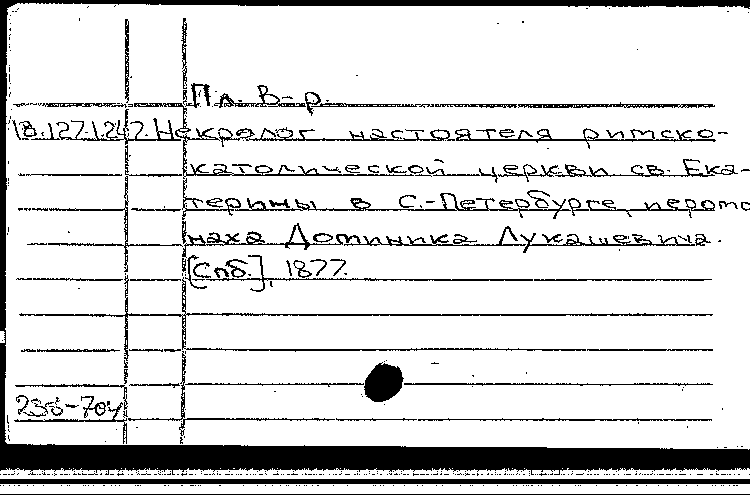 Пл. В-р.
18.127.1.247. Некролог настоятеля римско-
католической церкви св. Ека-
терины в С.-Петербурге, иеромо
наха Доминика Лукашевича.
[Спб.], 1877.
238-704